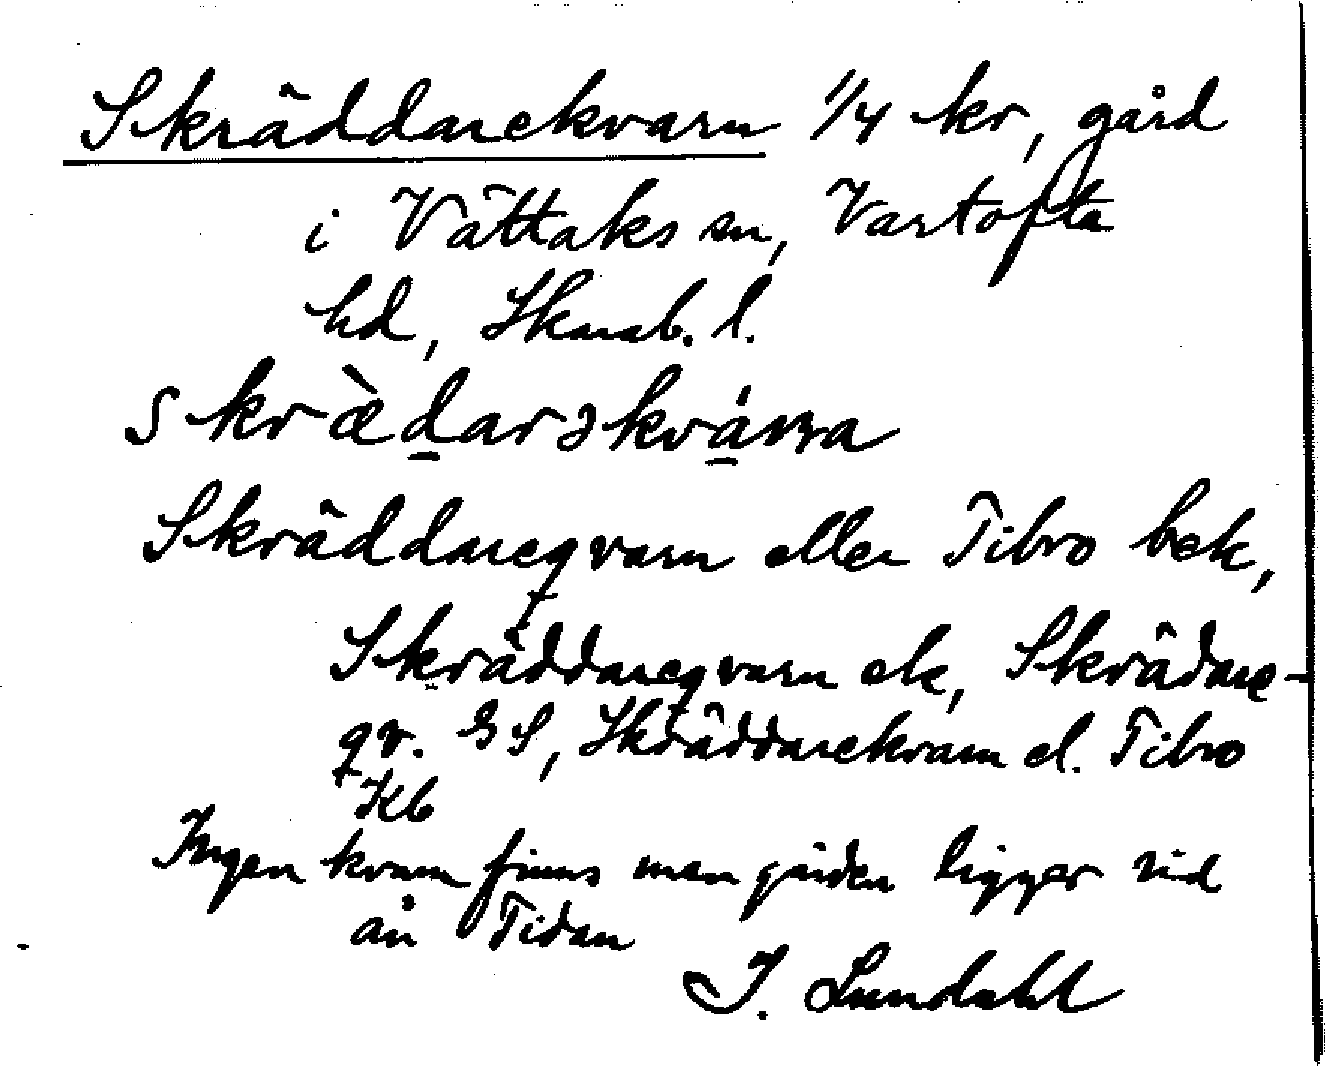 Skräddarekvarn 1/4 kr, gård
i Vättaks sn, Vartofta
hd, Skarab. l.
skræ̀darəkvárna
Skräddareqvarn eller Tibro bek,
Skräddareqvarn ek, Skrädare-
qv. GS, Skräddarekvarn el. Tibro
Kb
Ingen kvarn finns men gården ligger vid
ån Tidan
I. Lundahl